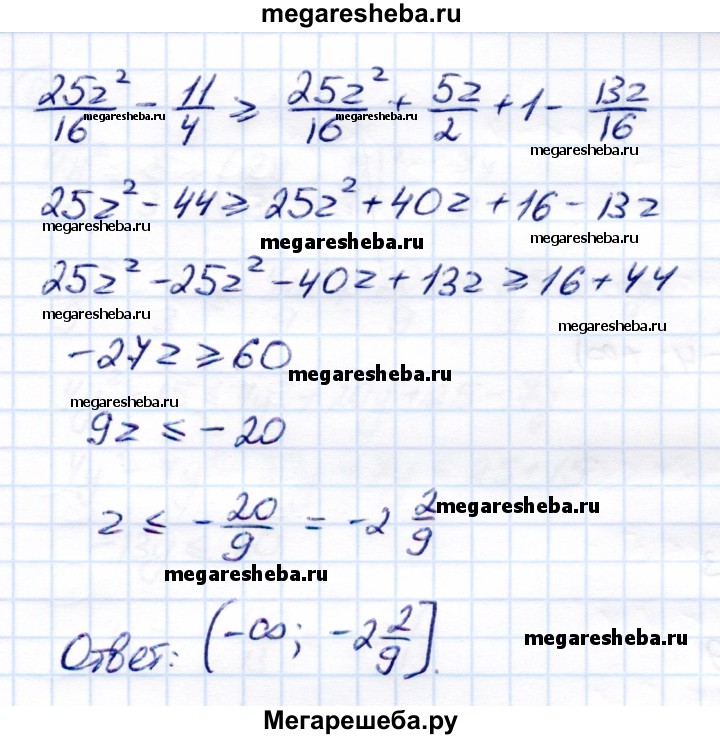 megaresheba.ru
25z²/16 - 11/4 ⩾ 25z²/16 + 5z/2 + 1 - 13z/16
megaresheba.ru megaresheba.ru
megaresheba.ru
25z² - 44 ⩾ 25z² + 40z + 16 - 13z
megaresheba.ru megaresheba.ru megaresheba.ru
25z² - 25z² - 40z + 13z ⩾ 16 + 44
megaresheba.ru megaresheba.ru
-27z ⩾ 60
megaresheba.ru
megaresheba.ru
9z ⩽ -20
z ⩽ -20/9 = -2 2/9
megaresheba.ru
megaresheba.ru
Ответ: (-∞; -2 2/9].
megaresheba.ru
Мегарешеба.ру